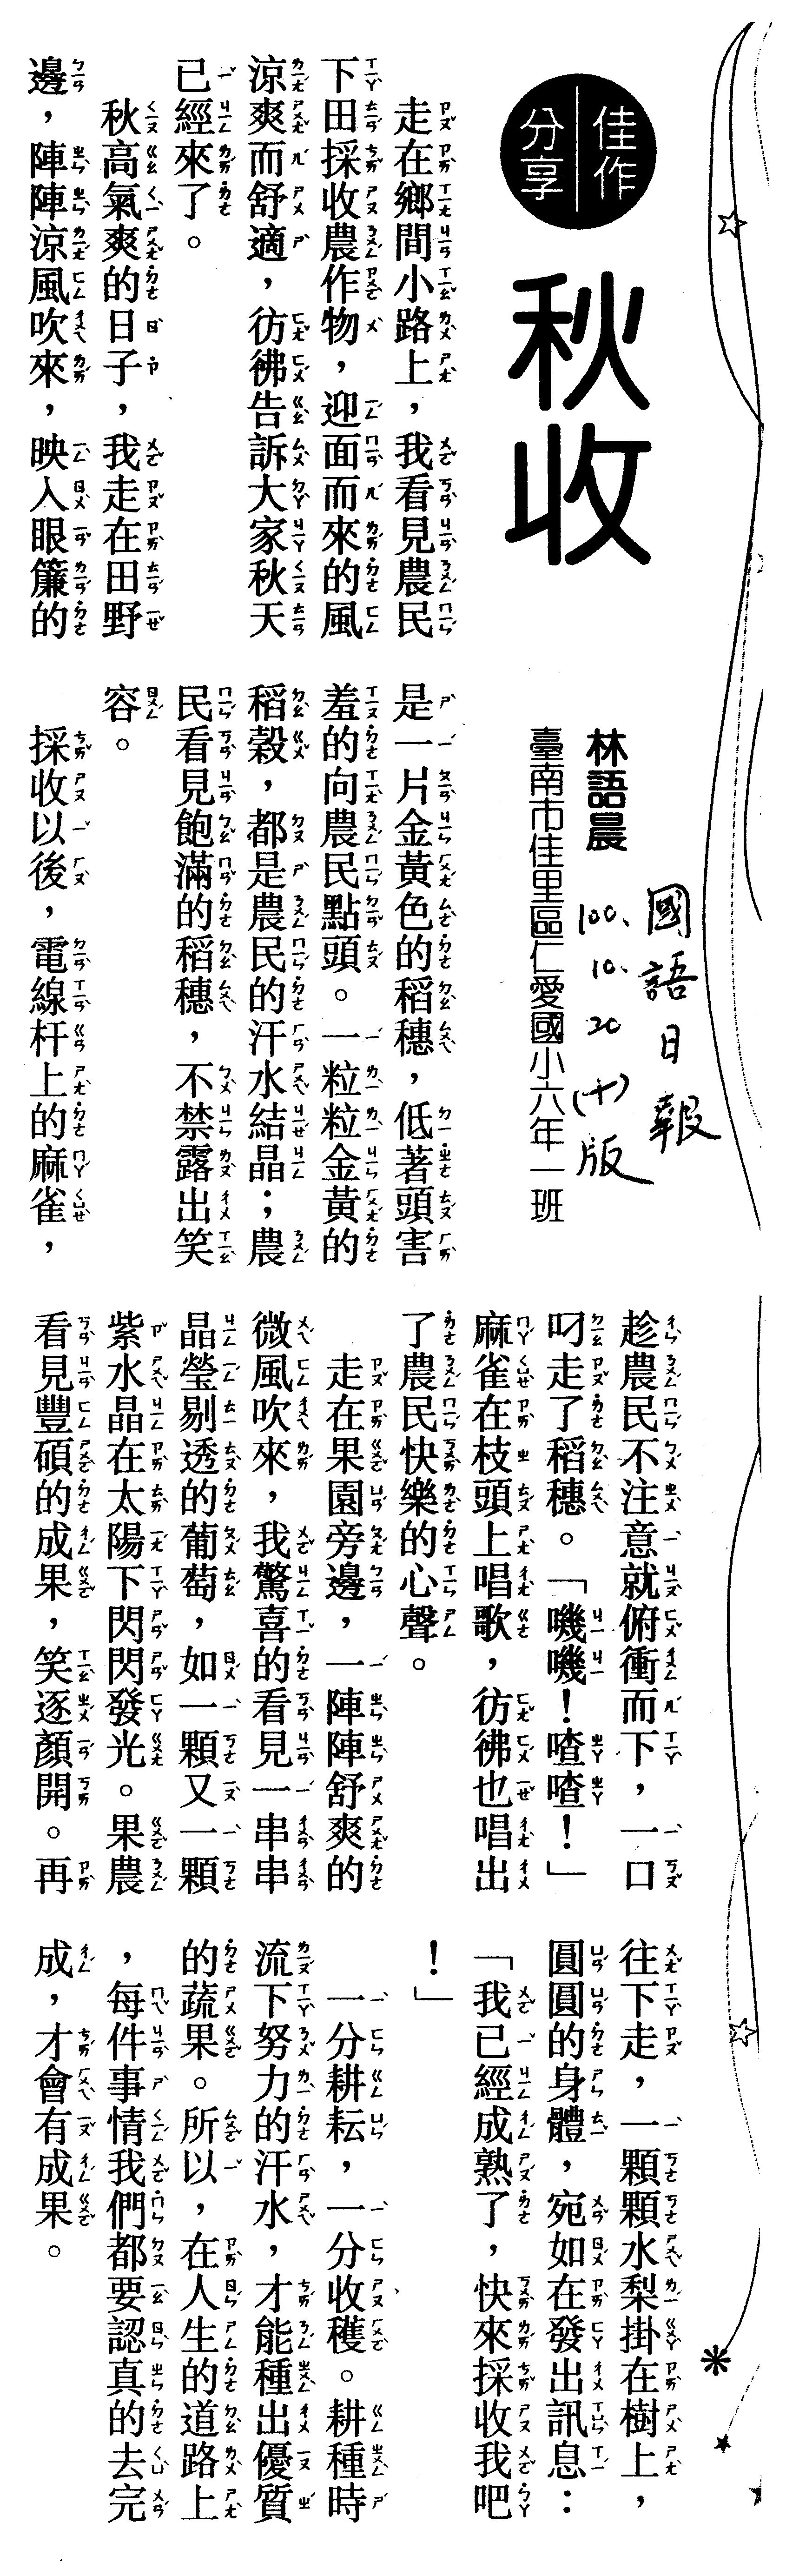 佳作
分享
秋收
林語晨
臺南市佳里區仁愛國小六年一班
國語日報
100.10.20(十)版
走在鄉間小路上，我看見農民
下田採收農作物，迎面而來的風
涼爽而舒適，彷彿告訴大家秋天
已經來了。
秋高氣爽的日子，我走在田野
邊，陣陣涼風吹來，映入眼簾的
是一片金黃色的稻穗，低著頭害
羞的向農民點頭。一粒粒金黃的
稻穀，都是農民的汗水結晶；農
民看見飽滿的稻穗，不禁露出笑
容。
採收以後，電線杆上的麻雀，
趁農民不注意就俯衝而下，一口
叼走了稻穗。「嘰嘰！喳喳！」
麻雀在枝頭上唱歌，彷彿也唱出
了農民快樂的心聲。
走在果園旁邊，一陣陣舒爽的
微風吹來，我驚喜的看見一串串
晶瑩剔透的葡萄，如一顆又一顆
紫水晶在太陽下閃閃發光。果農
看見豐碩的成果，笑逐顏開。再
往下走，一顆顆水梨掛在樹上，
圓圓的身體，宛如在發出訊息：
「我已經成熟了，快來採收我吧
！」
一分耕耘，一分收穫。耕種時
流下努力的汗水，才能種出優質
的蔬果。所以，在人生的道路上
，每件事情我們都要認真的去完
成，才會有成果。